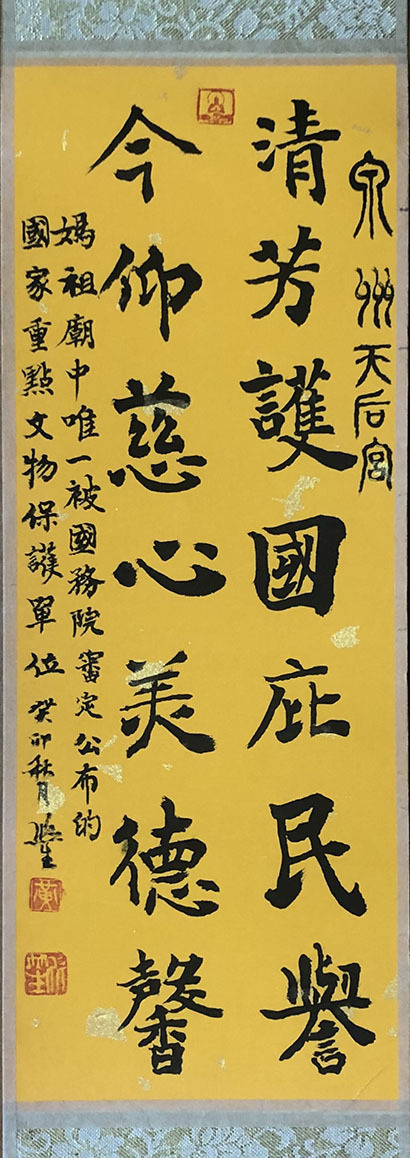 泉州天后宮
清芳護國庇民譽
今仰慈心美德馨
媽祖廟中唯一被國務院審定公布的
國家重點文物保護單位 癸卯秋月